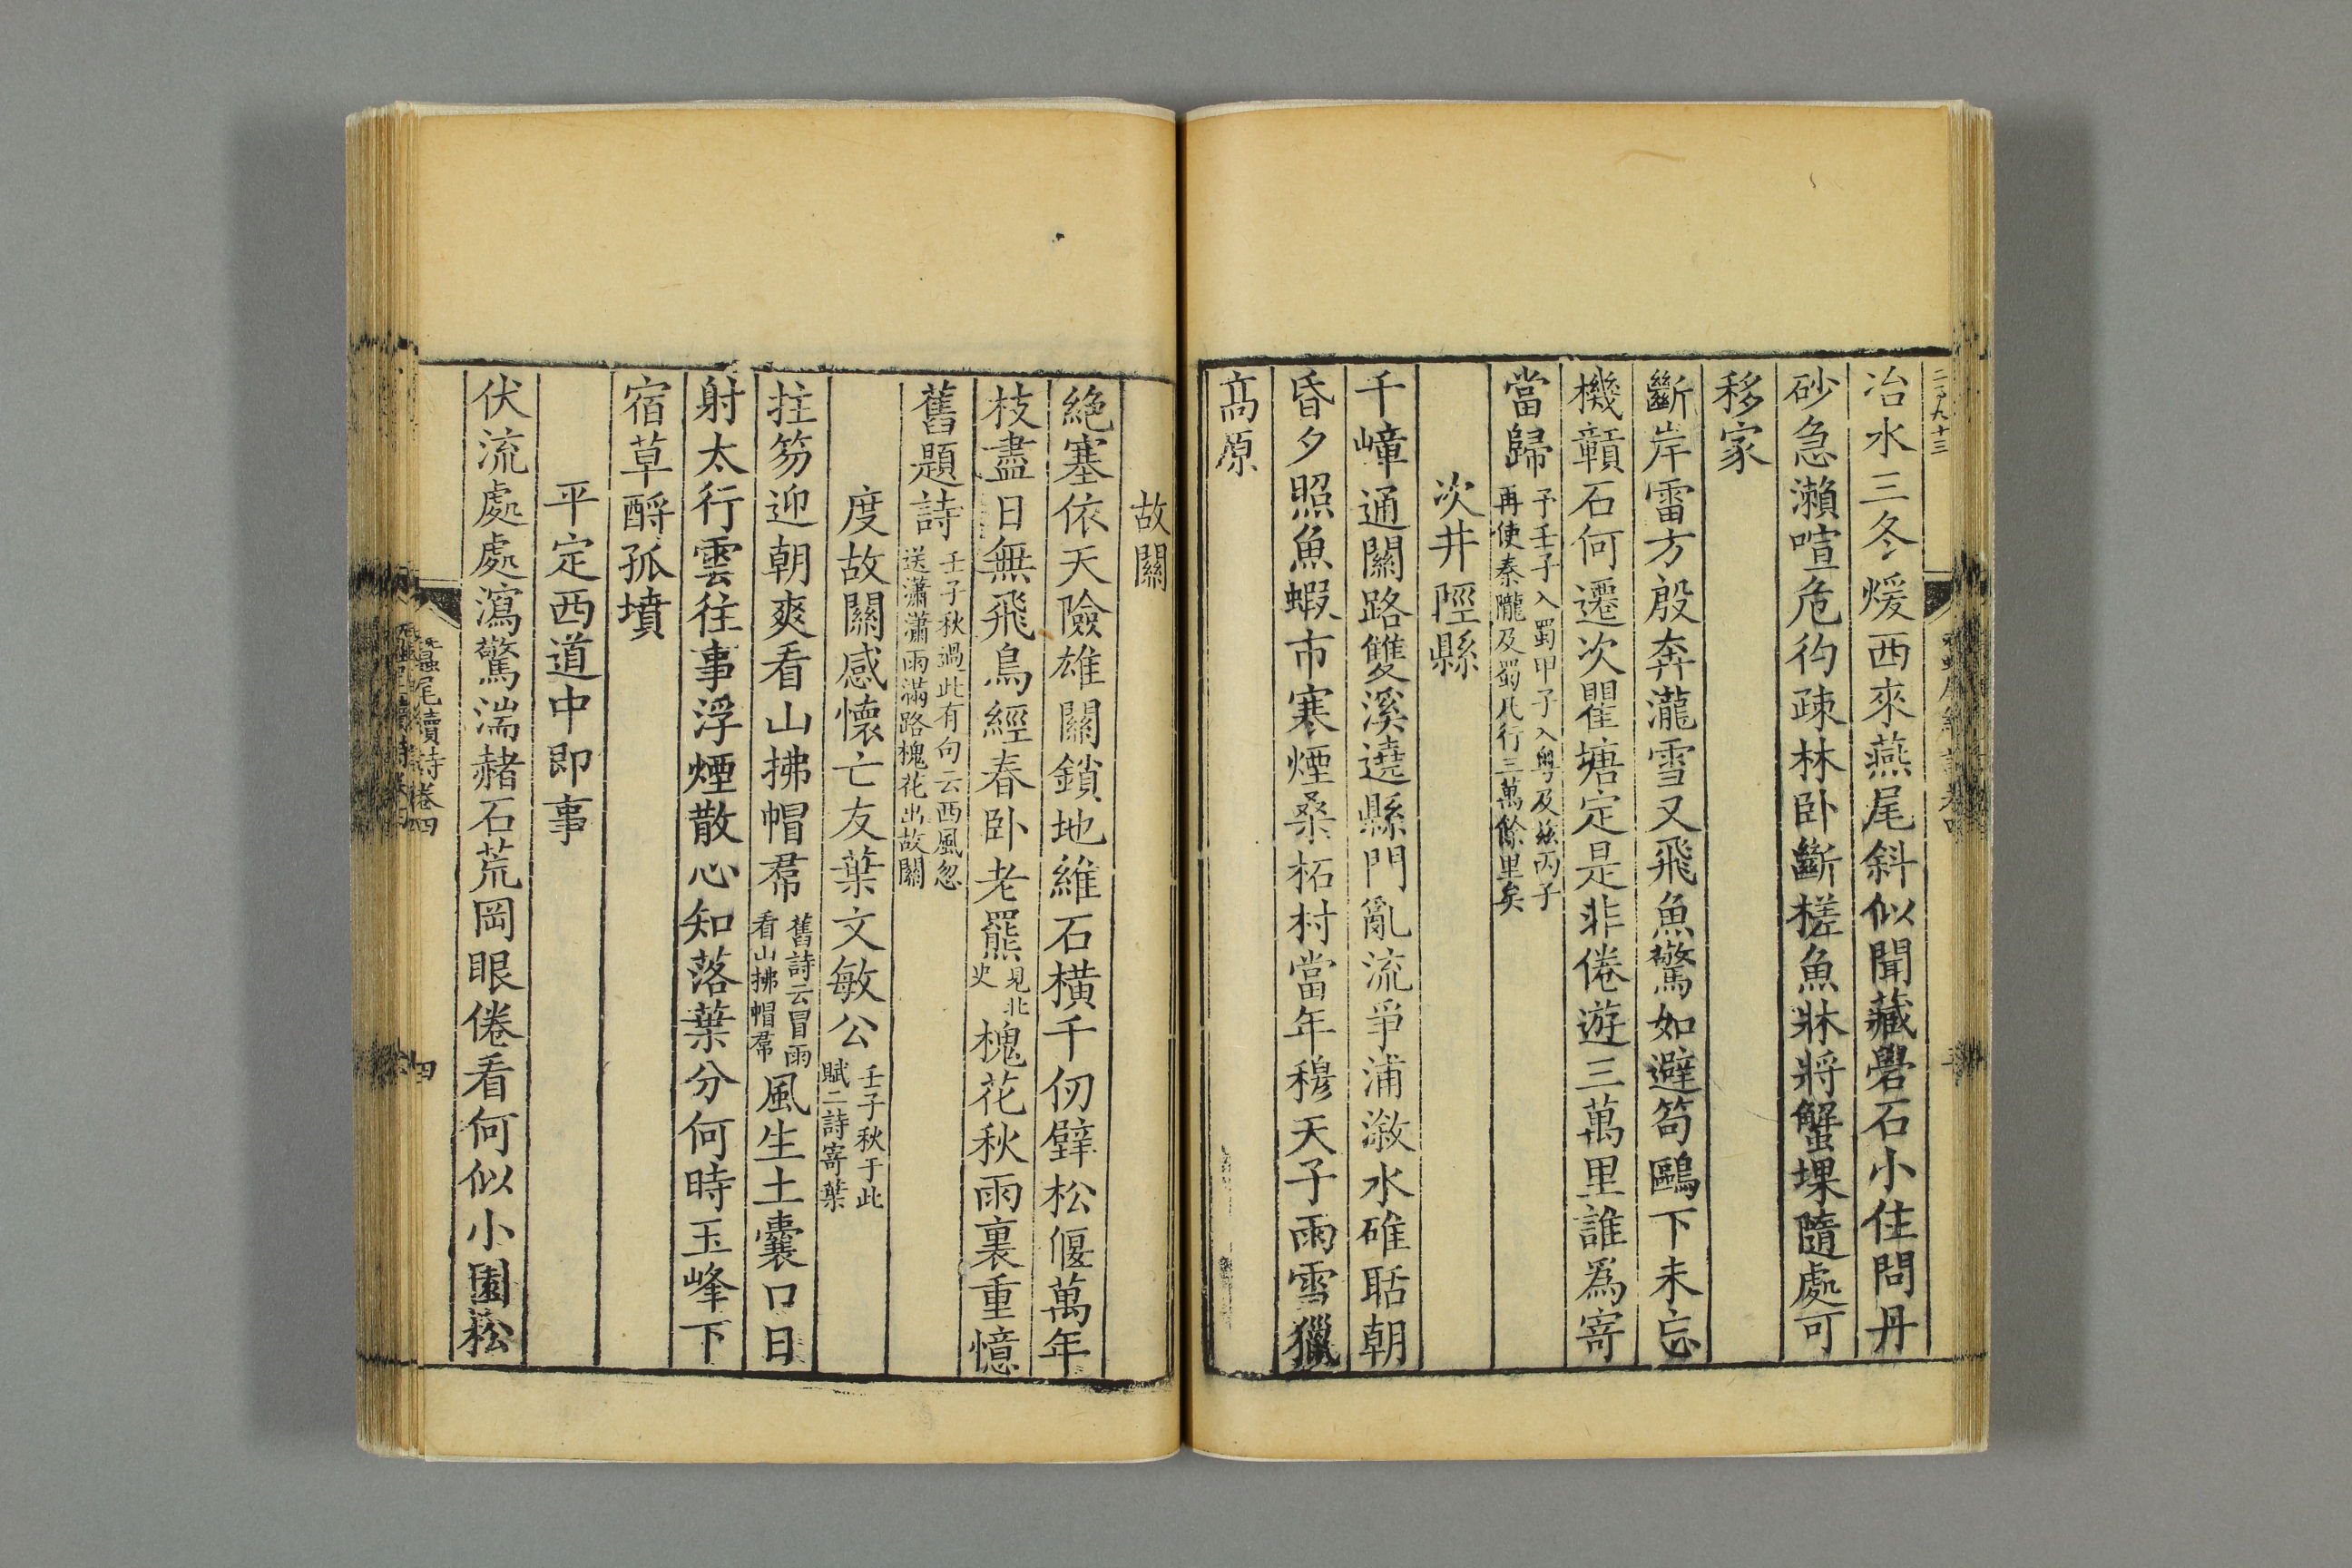 二百九十三
冶水三冬煖西來燕尾斜似聞藏礐石小住問丹
砂急瀨喧危彴疎林卧斷槎魚牀將蟹堁隨處可
移家
斷岸雷方殷奔瀧雪又飛魚驚如避笱鷗下未忘
機贑石何遷次瞿塘定是非倦遊三萬里誰爲寄
當歸予壬子入蜀甲子入粵及兹丙子
再使秦隴及蜀凡行三萬餘里矣
次井陘縣
千嶂通關路雙溪遶縣門亂流爭浦漵水碓聒朝
昏夕照魚蝦市寒煙桑柘村當年穆天子雨雪獵
髙原
故關
絶塞依天險雄關鎖地維石橫千仞壁松偃萬年
枝盡日無飛鳥經春卧老羆見北史槐花秋雨裏重憶
舊題詩壬子秋過此有句云西風忽
送瀟瀟雨滿路槐花出故關
度故關感懷亡友葉文敏公壬子秋于此
賦二詩寄葉
拄笏迎朝爽看山拂帽帬舊詩云冒雨
看山拂帽帬風生土囊口日
射太行雲往事浮煙散心知落葉分何時玉峰下
宿草酹孤墳
平定西道中即事
伏流處處瀉驚湍赭石荒岡眼倦看何似小園松
蠶尾續詩卷四
四